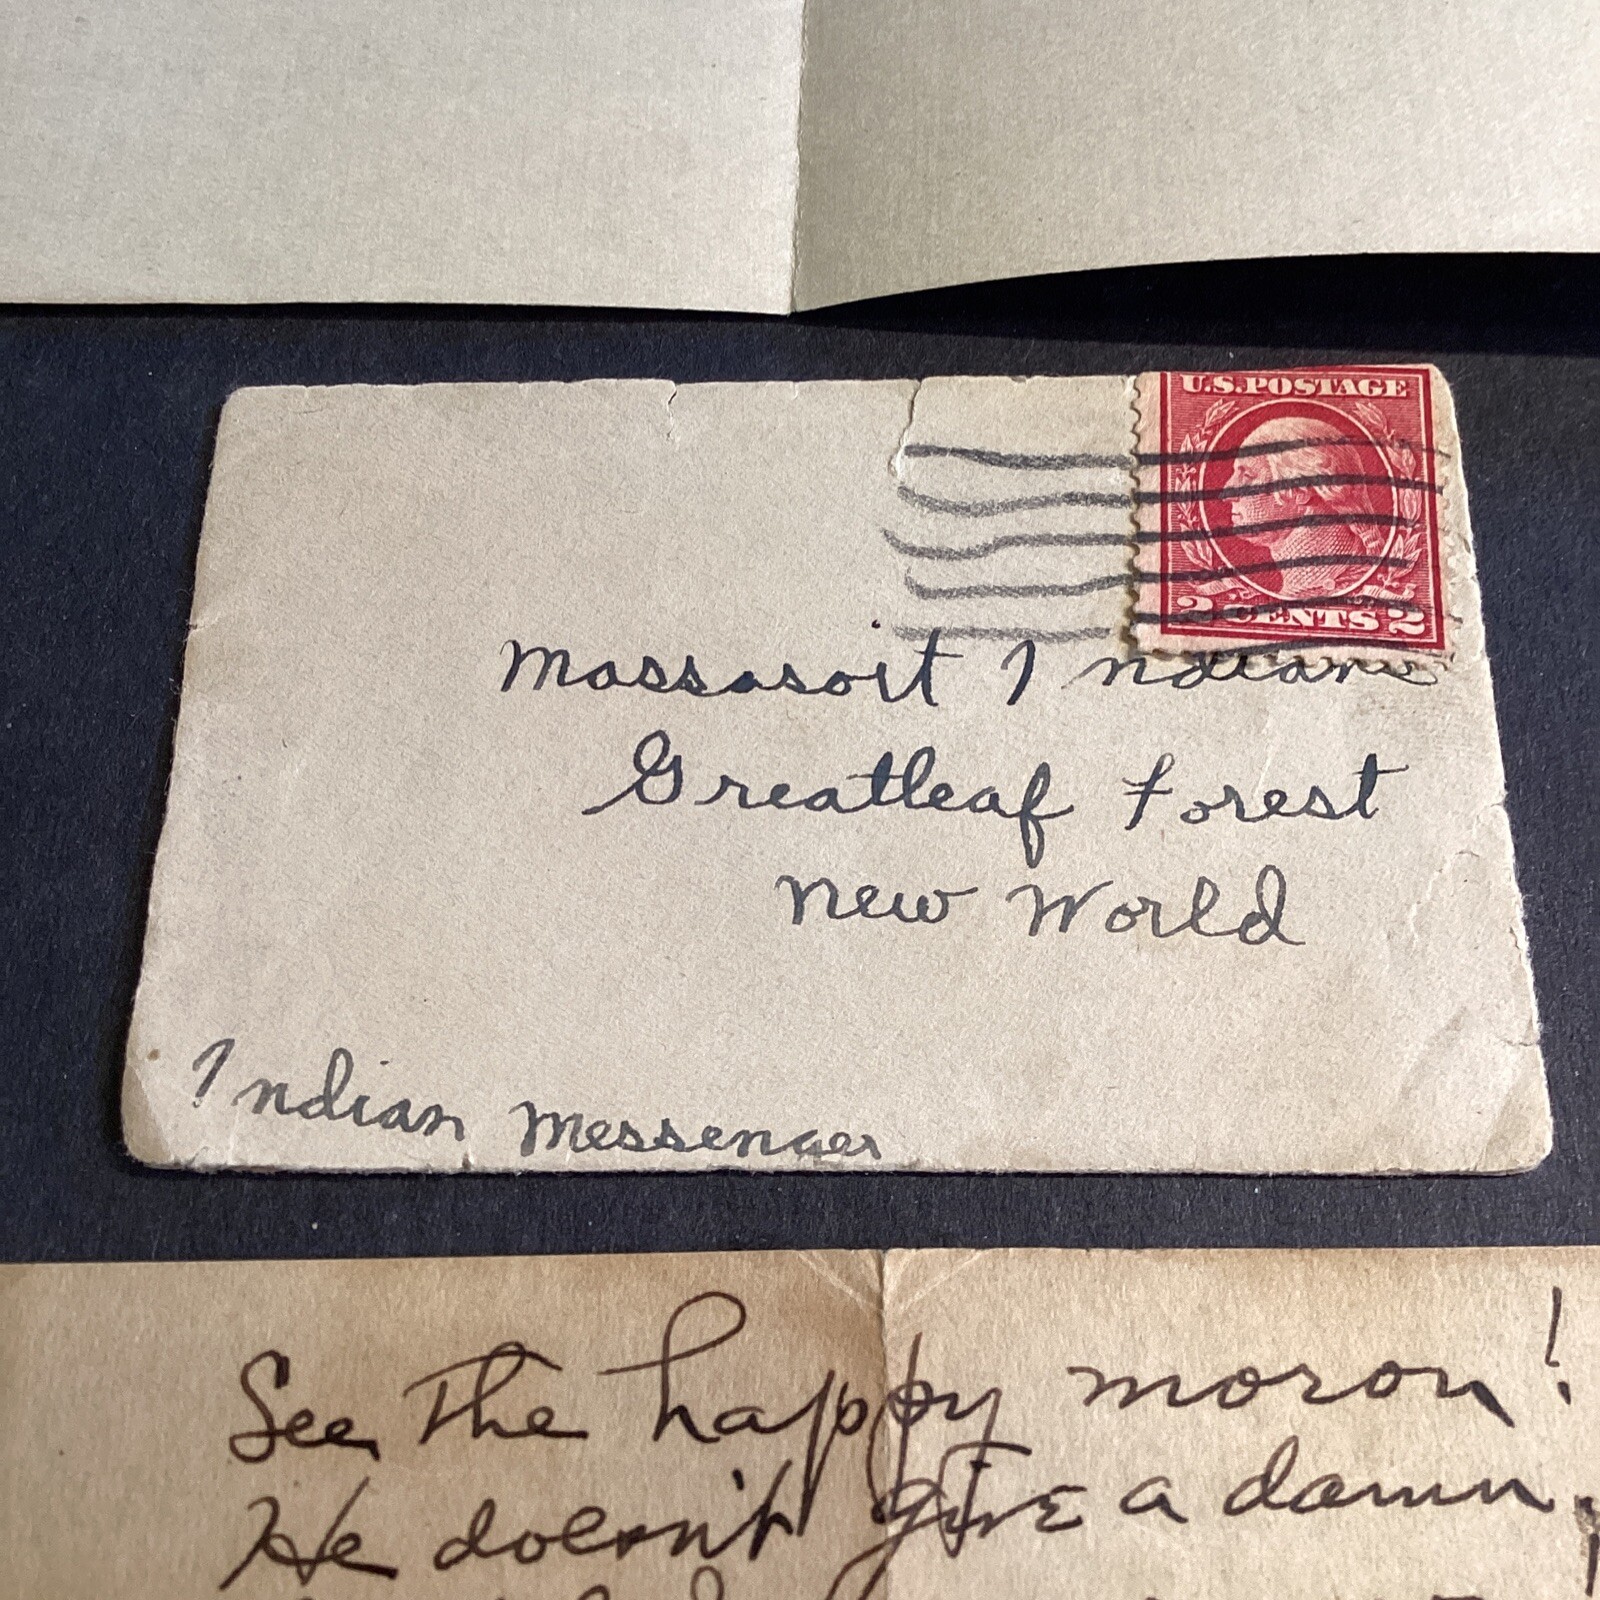 U.S. POSTAGE
2 CENTS 2
Massasoit Indians
Greatleaf Forest
New World
Indian Messenger
See the happy moron!
He doesn't give a damn,